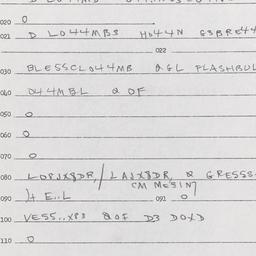 020 O
021 D LO44MBS HO44N G3BRE44
022
030 BLESSCLO44MB & GL FLASHBUL
040 O44MBL & OF
050 O
060 O
070 O
080 LOPJX8DR, / LAJX8DR, & GRESSS
CM MESIN7
090 H E..L 091 O
100 VESS..XP3 & OF D3 DOXD
110 O